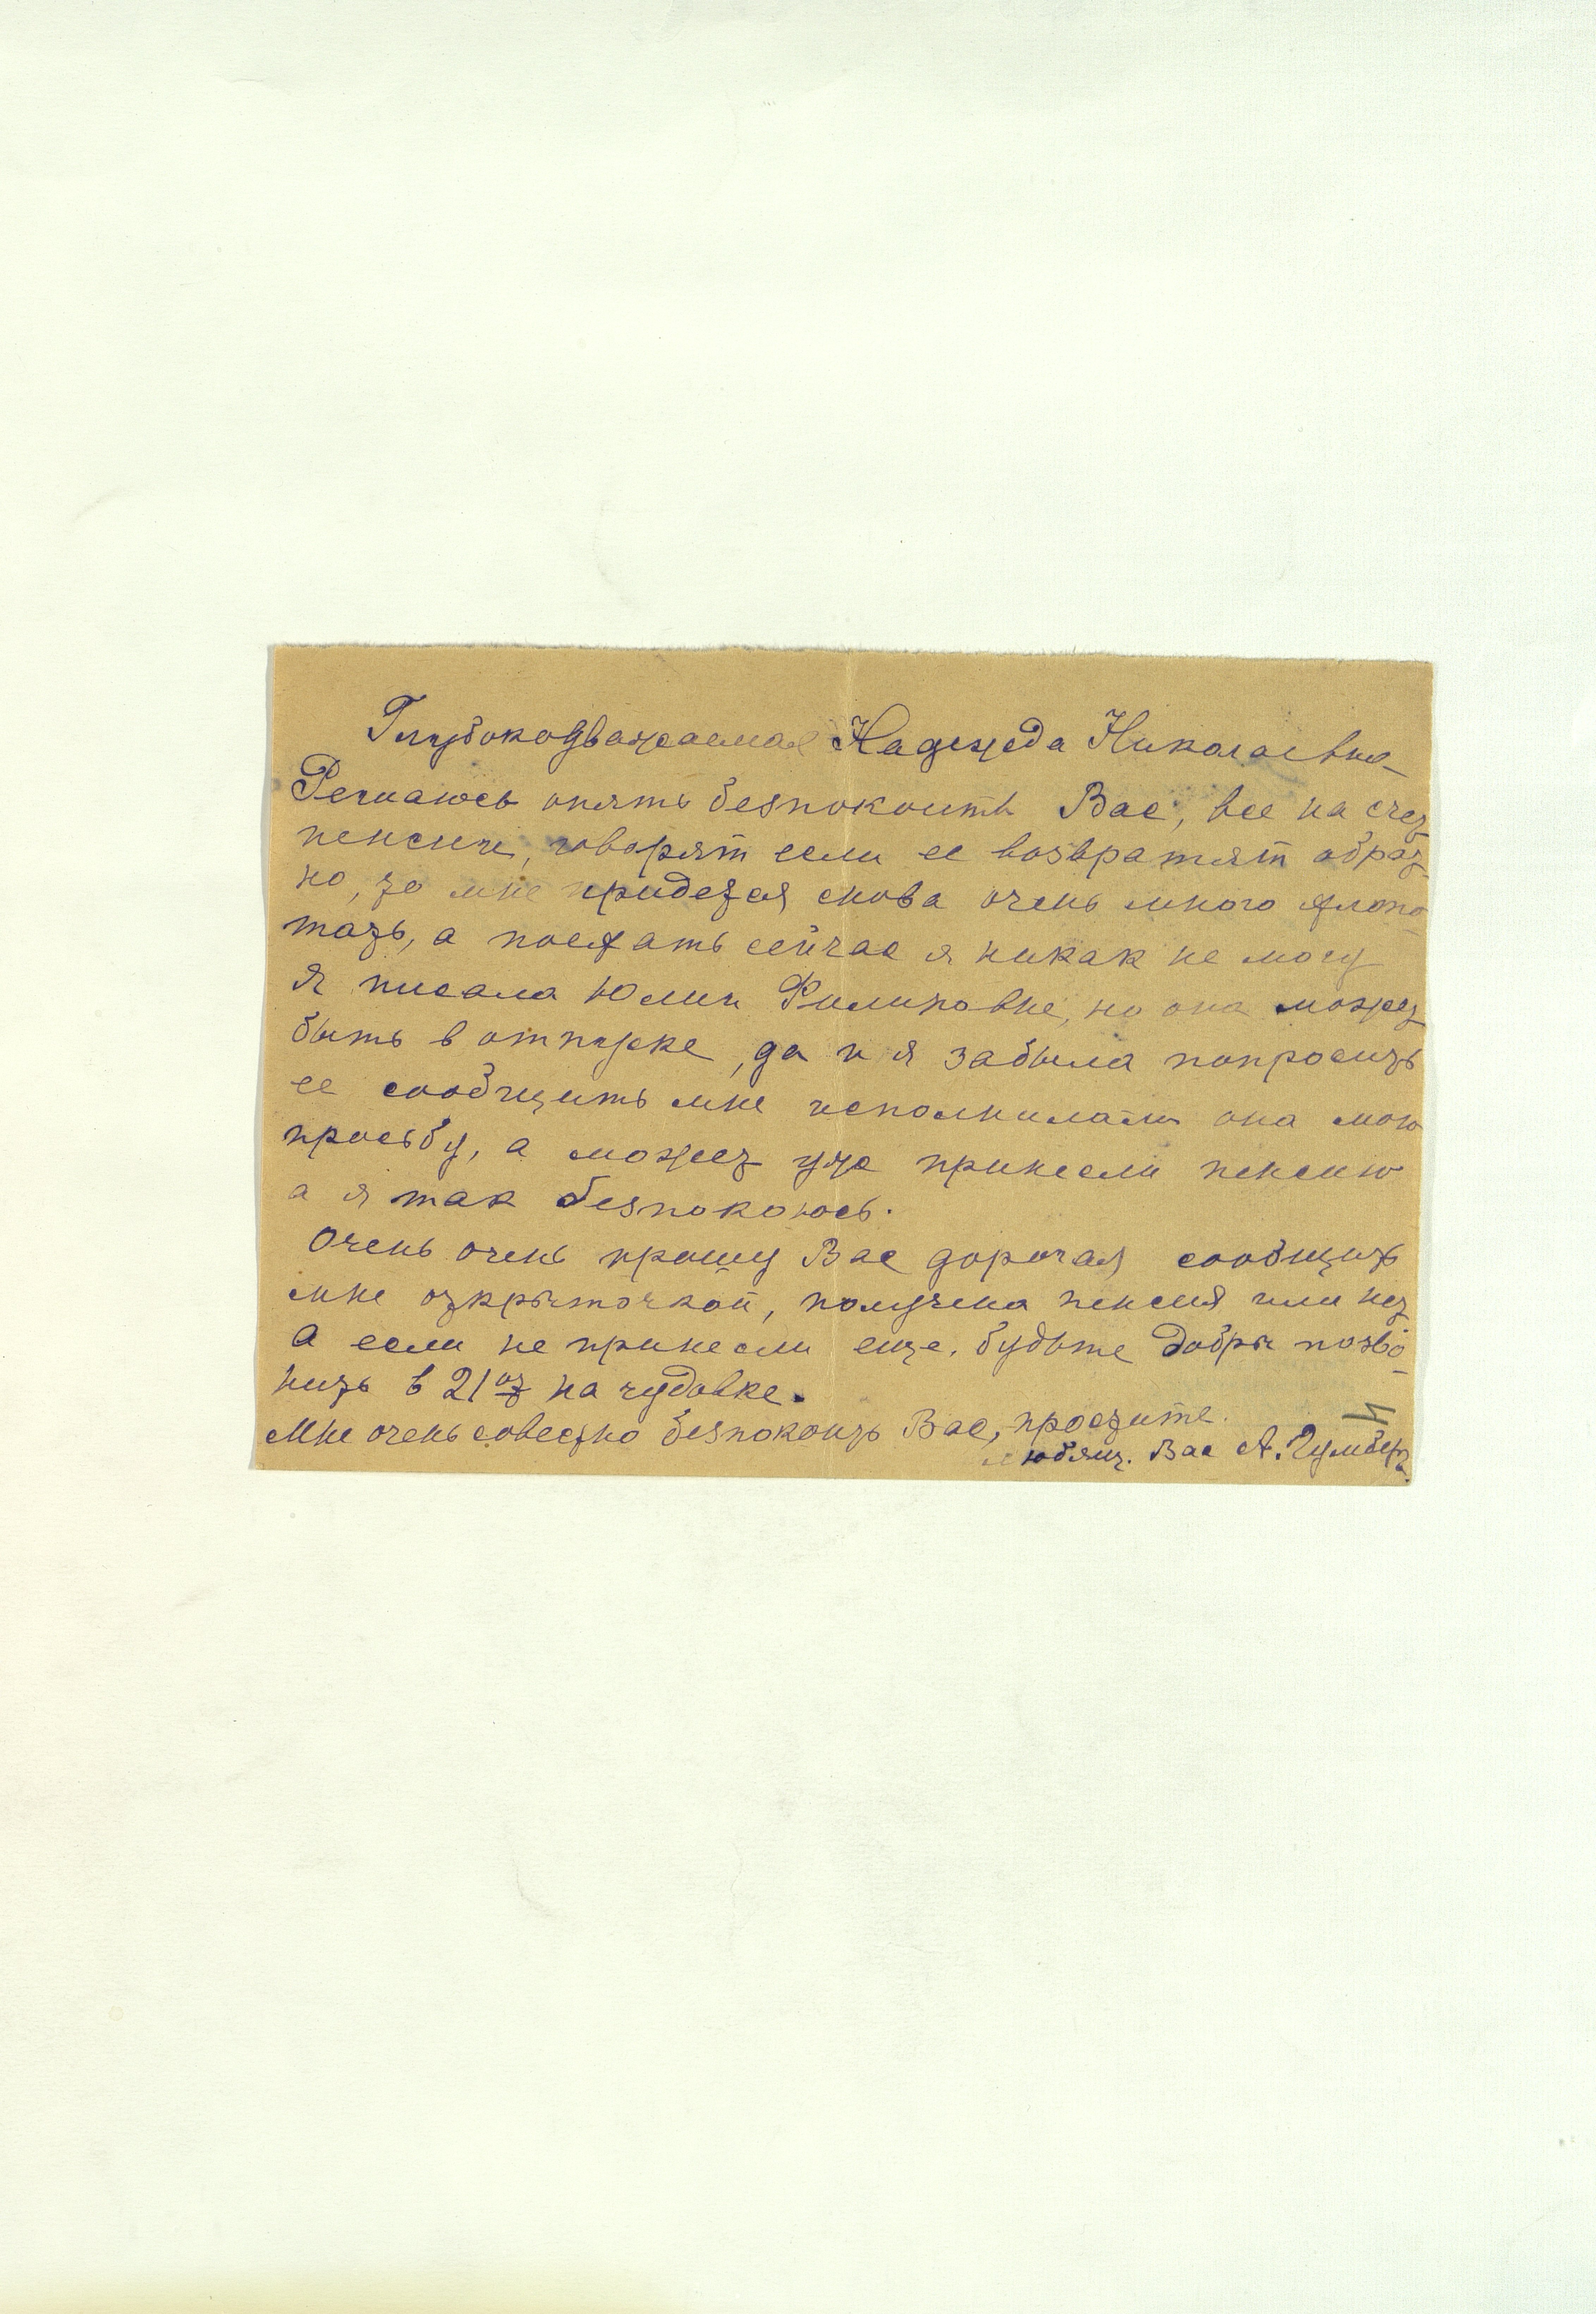 Глубокоуважаемая Надежда Николаевна
Решаюсь опять безпокоить Вас, все на счет
пенсии, говорят если ее возвратят обрат-
но, то мне придется снова очень много хлопо-
тать, а поехать сейчас я никак не могу
Я писала Юлии Филиповне, но она может
быть в отпуске, да и я забыла попросить
ее сообщить мне исполнилали она мою
просьбу, а может уже принесли пенсию
а я так безпокоюсь.
Очень очень прошу Вас дорогая сообщить
мне открыточкой, получена пенсия или нет
А если не принесли еще, будьте добры позво-
нить в 21 от на чудовке.
Мне очень совестно безпокоить Вас, простите.
любящ. Вас А.